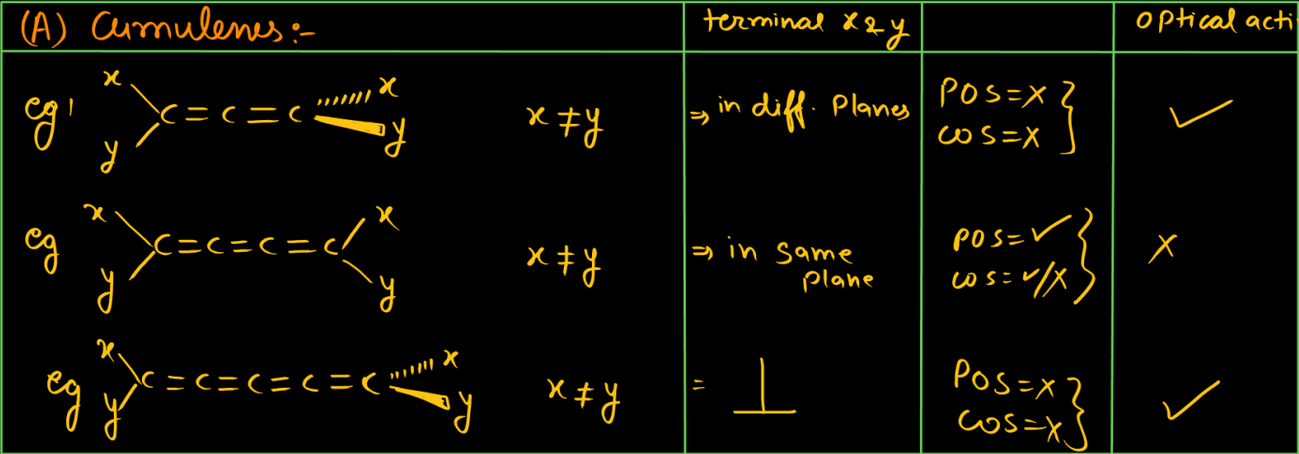 (A) Cumulenes:- terminal x & y optical acti
eg' x y C = C = C x y x ≠ y ⇒ in diff. Planes POS = X COS = X } ✓
eg x y C = C = C = C x y x ≠ y ⇒ in same plane POS = ✓ COS = ✓/X } X
eg x y C = C = C = C = C x y x ≠ y = ⊥ POS = X COS = X } ✓